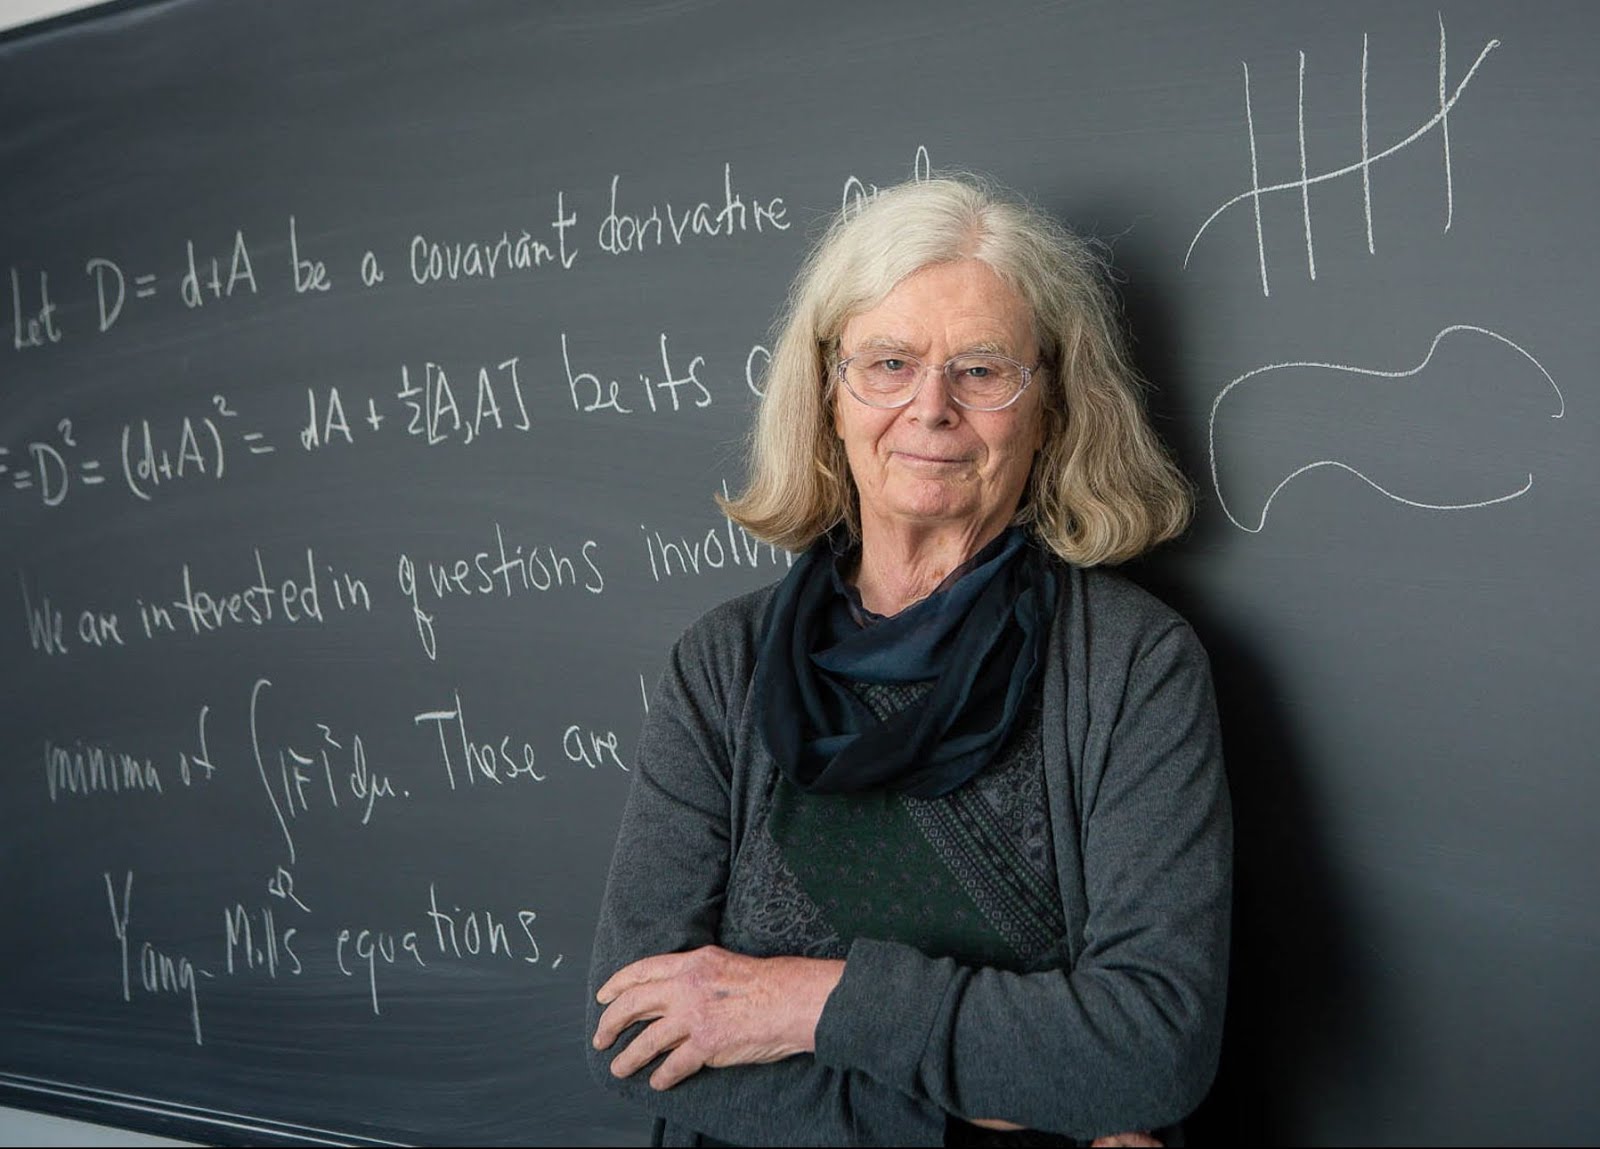 Let D = d+A be a covariant derivative and
= D² = (d+A)² = dA + ½[A,A] be its
We are interested in questions
minima of ∫|F|²dμ. These are
Yang-Mills equations.